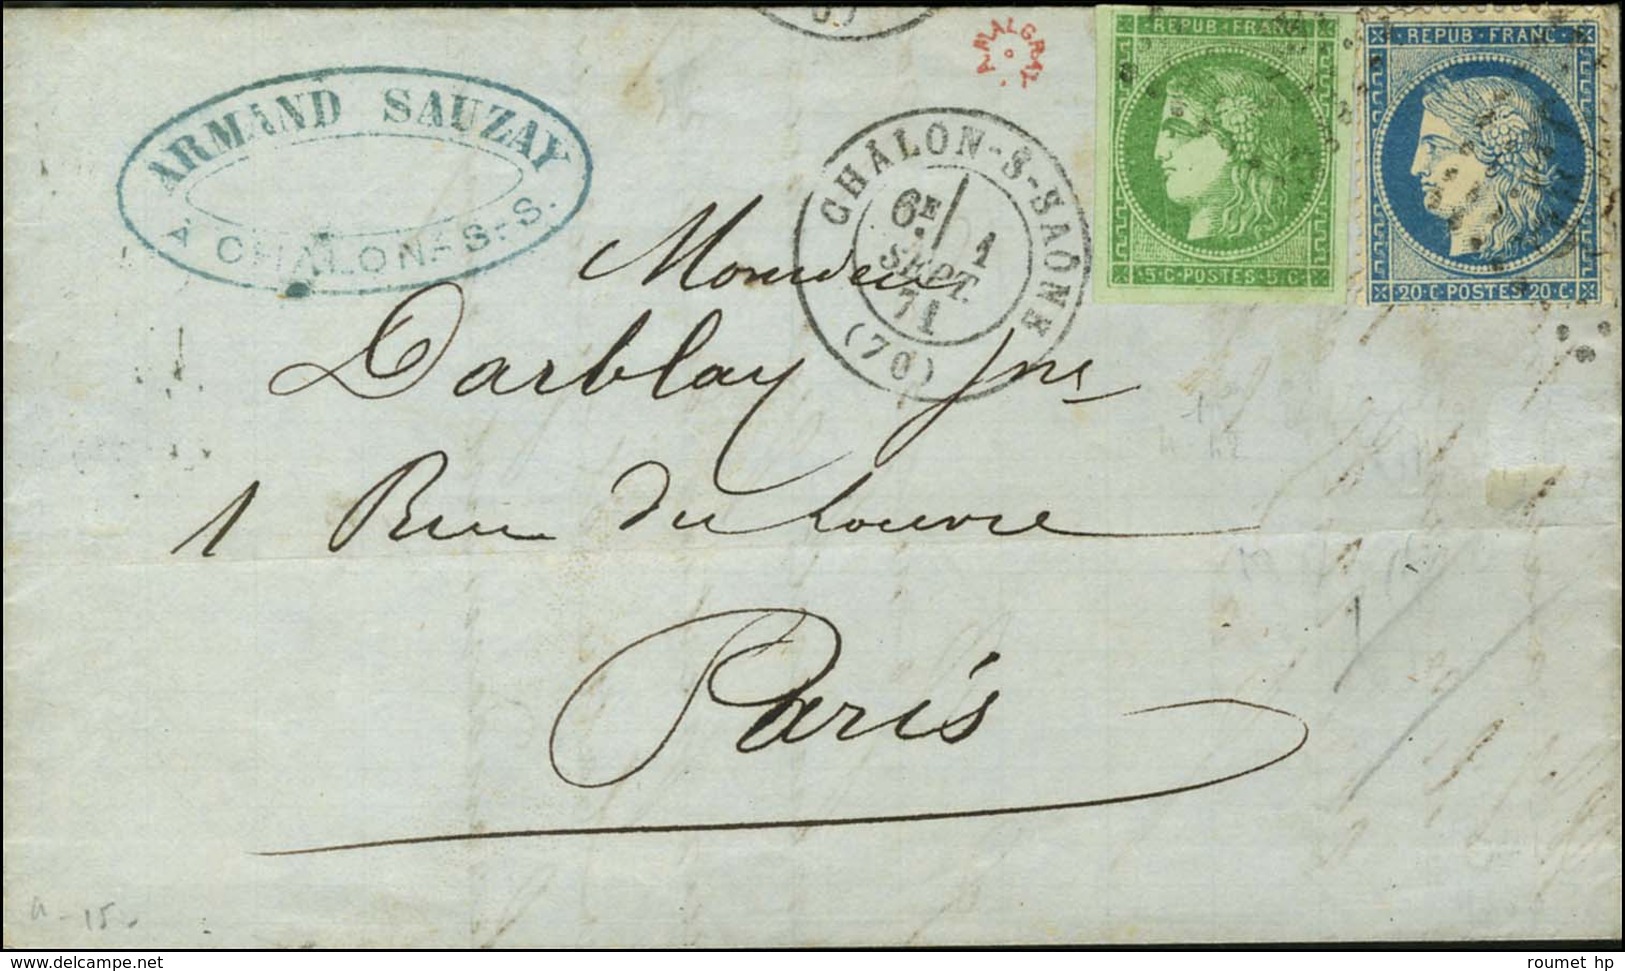 ARMAND SAUZAY
À CHALON-S-S.
A.MALGRAS.
CHALON-S-SAÔNE
6E 1
SEPT.
71
(70)
REPUB·FRANC·
5·C·POSTES·5·C·
REPUB·FRANC·
20·C·POSTES·20·C·
Monsieur
Darblay Jne
1 Rue du Louvre
Paris
1
a-15
www.delcampe.net
roumet hp